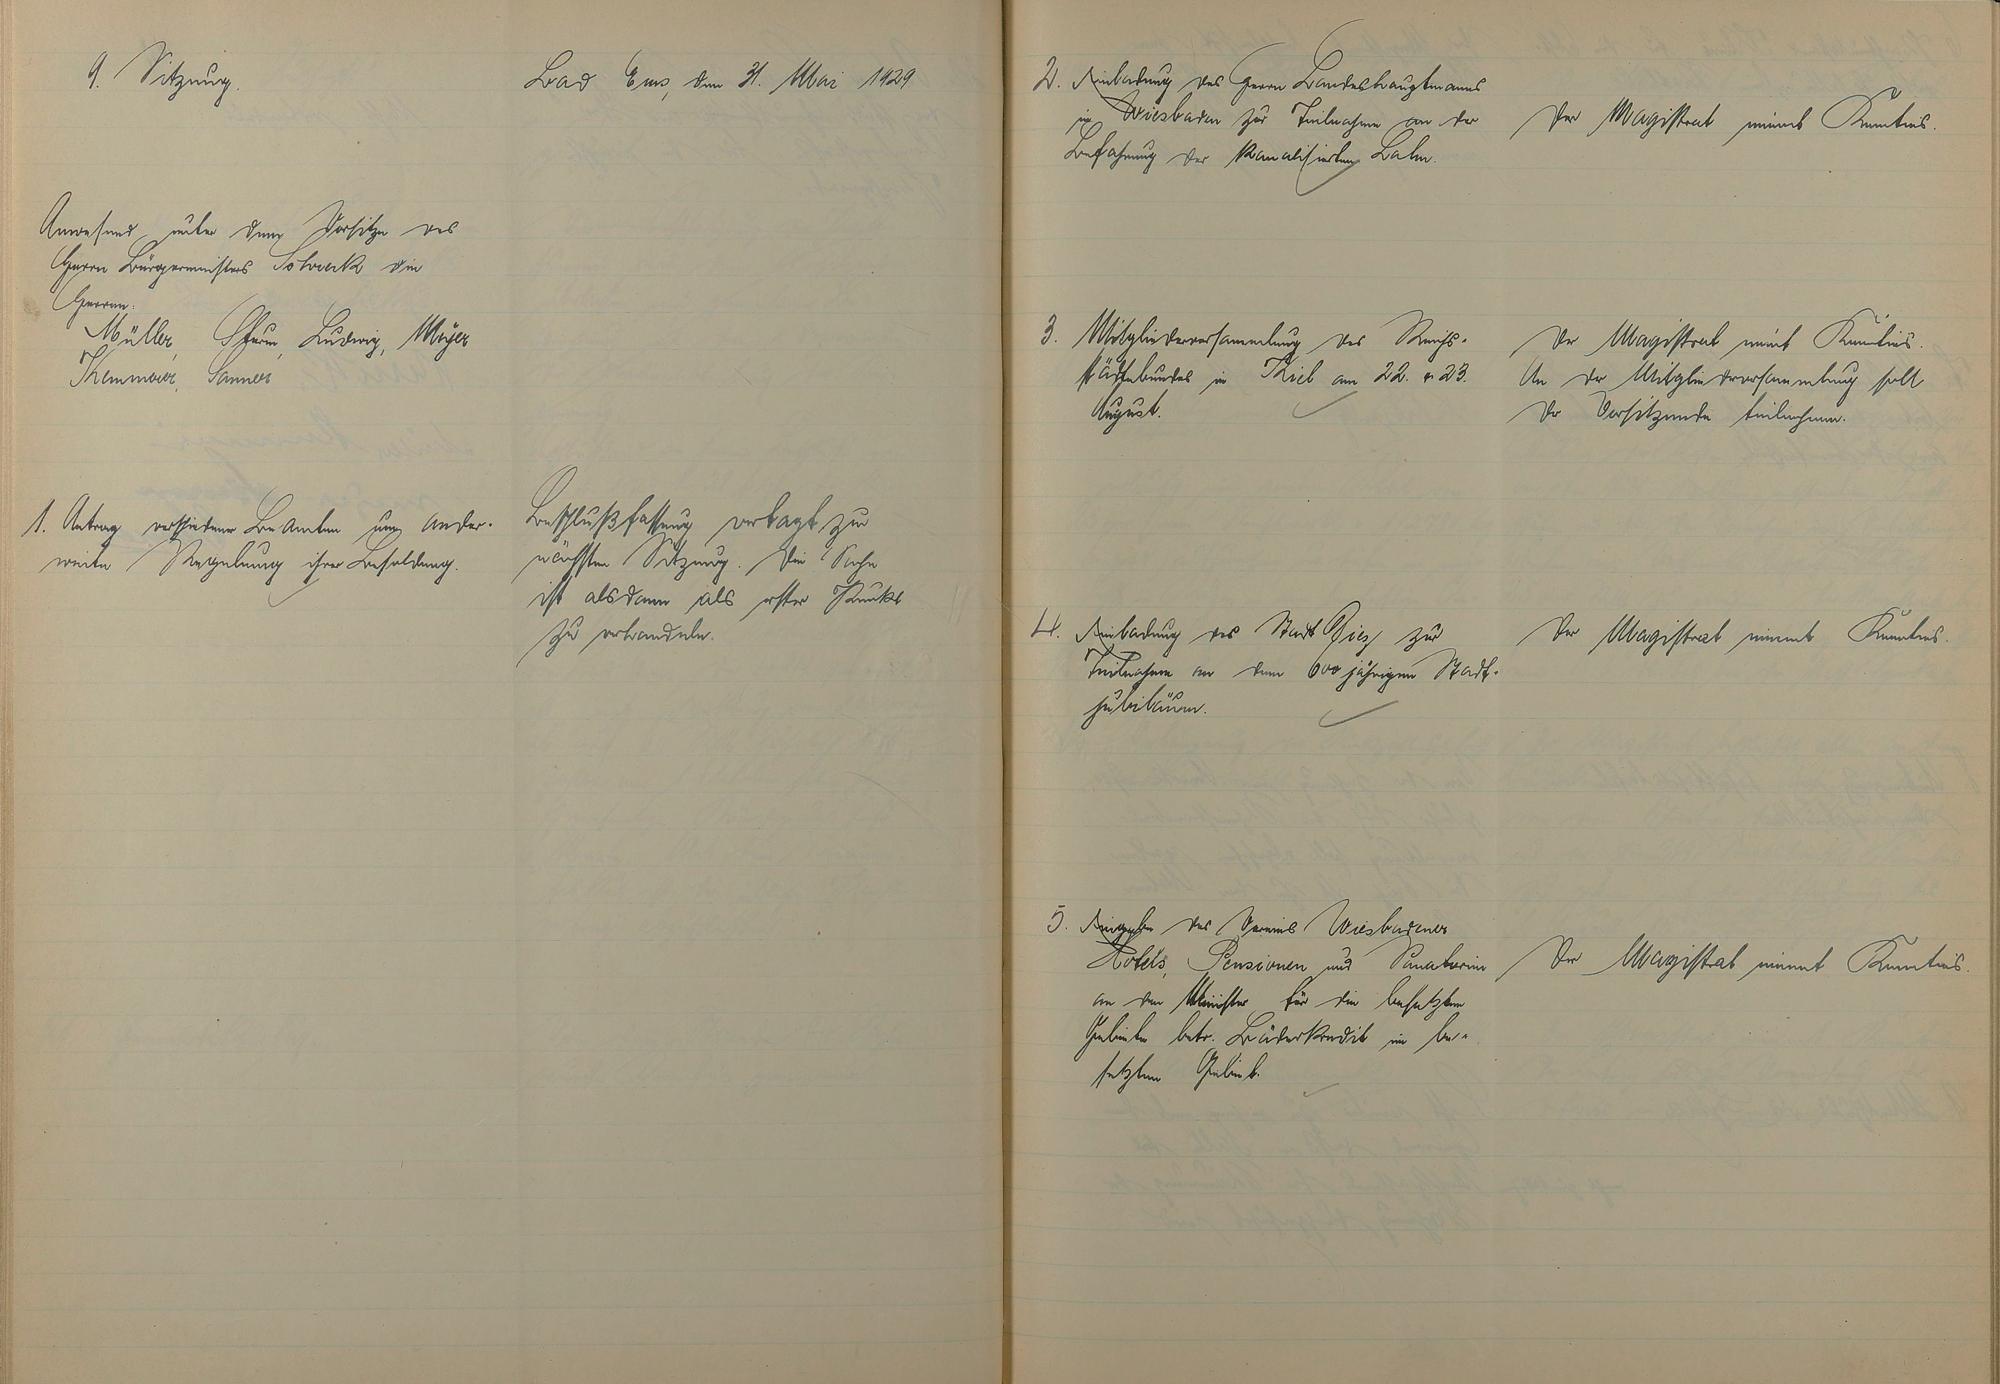 9. Sitzung.
Bad Ems, den 31. Mai 1929
Anwesend unter dem Vorsitze des
Herrn Bürgermeisters Schreck die
Herren:
Müller, Sturm, Ludwig, Meyer
Kemmerer, Sanner
1. Antrag verschiedener Beamten um ander-
weite Regelung ihrer Besoldung.
Beschlußfassung vertagt zur
nächsten Sitzung. Die Sache
ist alsdann als erster Punkt
zu verhandeln.
2. Einladung des Herrn Landeshauptmanns
in Wiesbaden zur Teilnahme an der
Befahrung der kanalisierten Lahn.
Der Magistrat nimmt Kenntnis.
3. Mitgliederversammlung des Reichs-
städtebundes in Kiel am 22. u. 23.
August.
Der Magistrat nimmt Kenntnis.
An der Mitgliederversammlung soll
der Vorsitzende teilnehmen.
4. Einladung der Stadt Diez zur
Teilnahme an dem 600 jährigen Stadt-
jubiläum.
Der Magistrat nimmt Kenntnis.
5. Eingabe des Vereins Wiesbadener
Hotels, Pensionen und Sanatorien
an den Minister für die besetzten
Gebiete betr. Bäderkredit im be-
setzten Gebiet.
Der Magistrat nimmt Kenntnis.